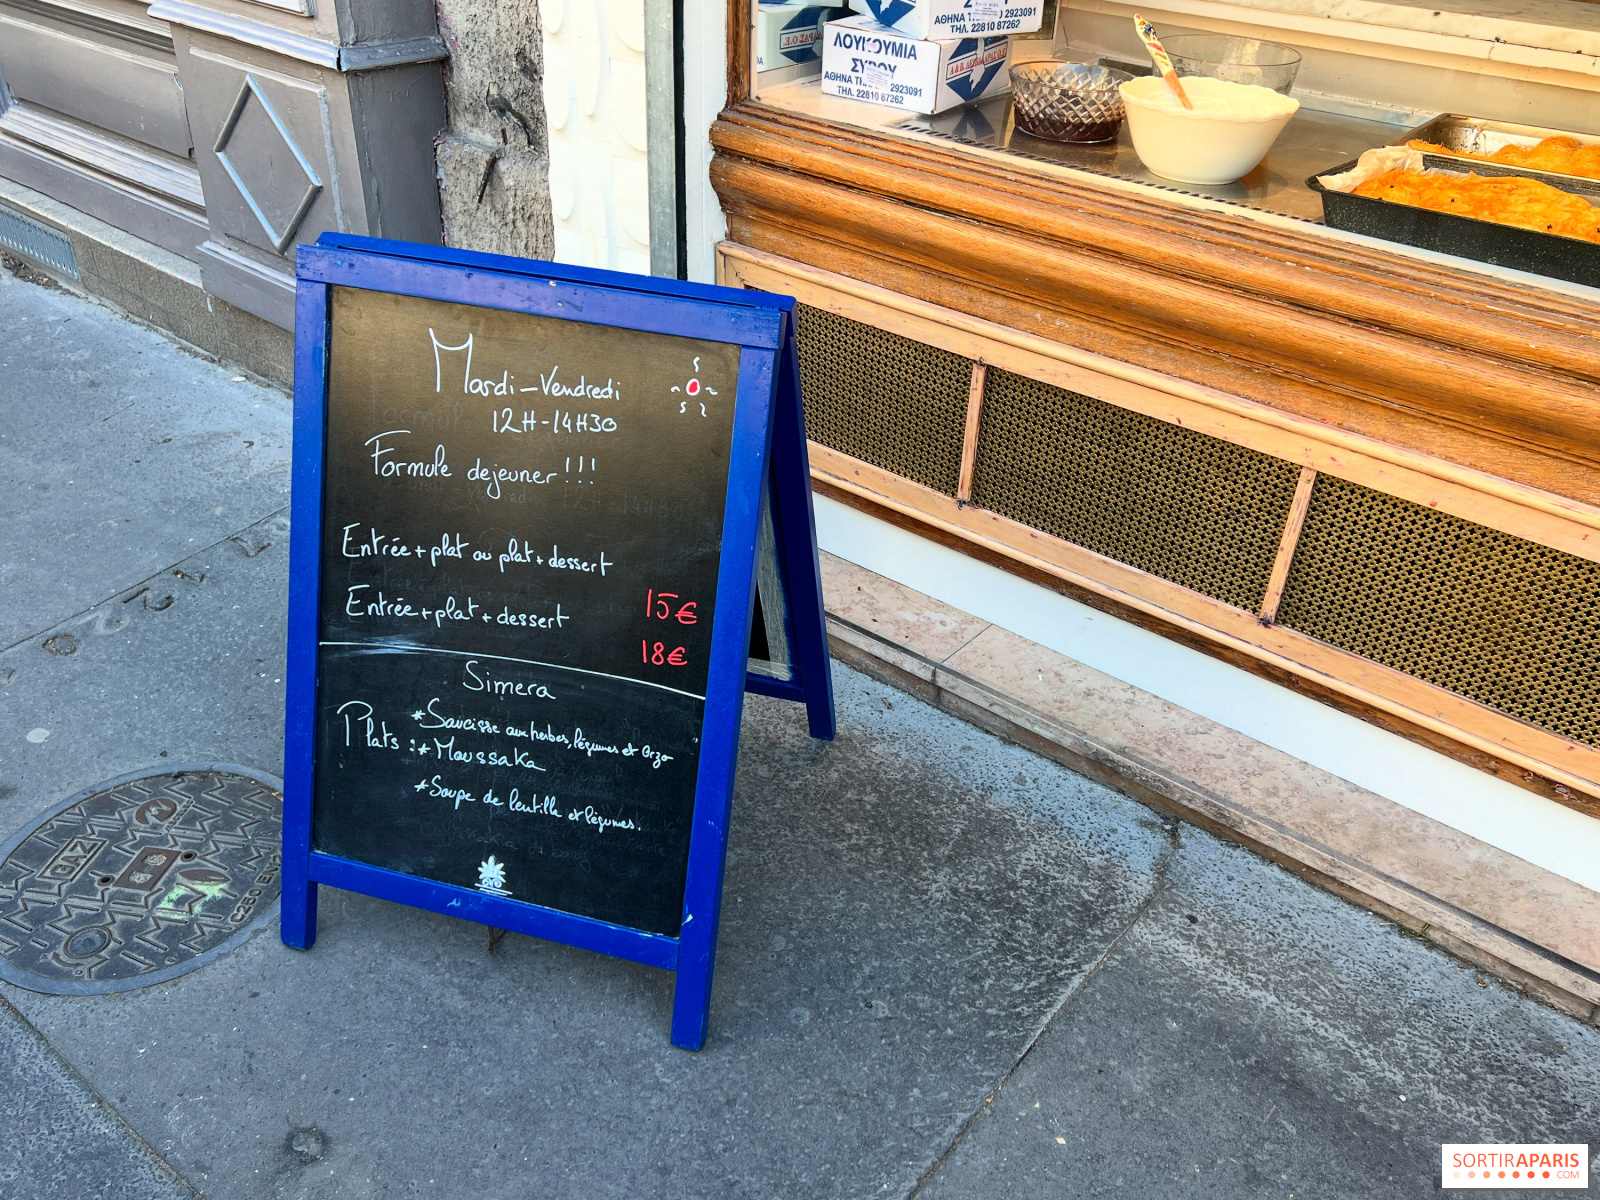 Mardi-Vendredi
12H-14H30
Formule dejeuner!!!
Entrée+plat ou plat+dessert
15€
Entrée+plat+dessert
18€
Simera
Plats:
*Saucisse aux herbes, légumes et Orzo
*Moussaka
*Soupe de lentille et légumes.
ΑΘΗΝΑ
2923091
ΤΗΛ. 22810 87262
ΛΟΥΚΟΥΜΙΑ
ΣΥΡΟΥ
ΑΘΗΝΑ ΤΗΛ. 2923091
ΤΗΛ. 22810 87262
GAZ
C250 EN
SORTIRAPARIS
.COM